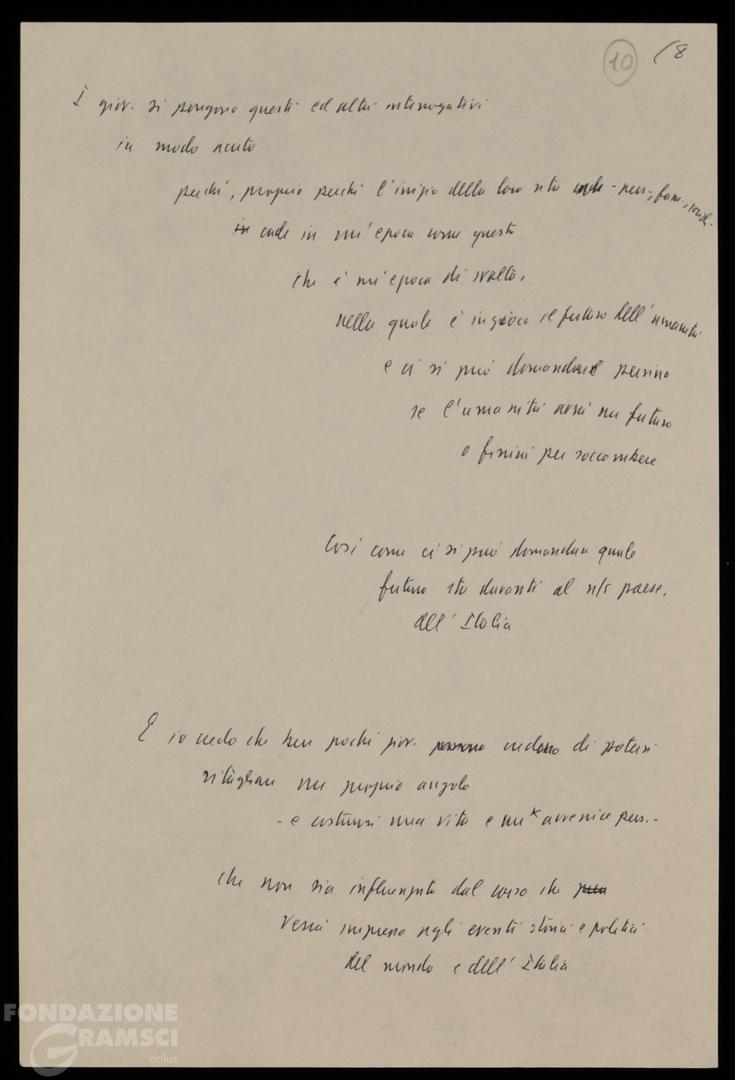 10 (8
I giov. si pongono questi ed altri interrogativi
in modo acuto
perché, proprio perché l'inizio della loro vita - pers., fam., social. -
cade in un'epoca come questa
che è un'epoca di svolta,
nella quale è in gioco il futuro dell'umanità
e ci si può domandare persino
se l'umanità avrà un futuro
o finirà per soccombere
Così come ci si può domandare quale
futuro sta davanti al n/s paese,
all'Italia
E io credo che ben pochi giov. possono credono di potersi
ritagliare un proprio angolo
- e costruirsi una vita e un avvenire pers. -
che non sia influenzato dal corso che
verrà impresso agli eventi storici e politici
del mondo e dell'Italia
FONDAZIONE
GRAMSCI
onlus